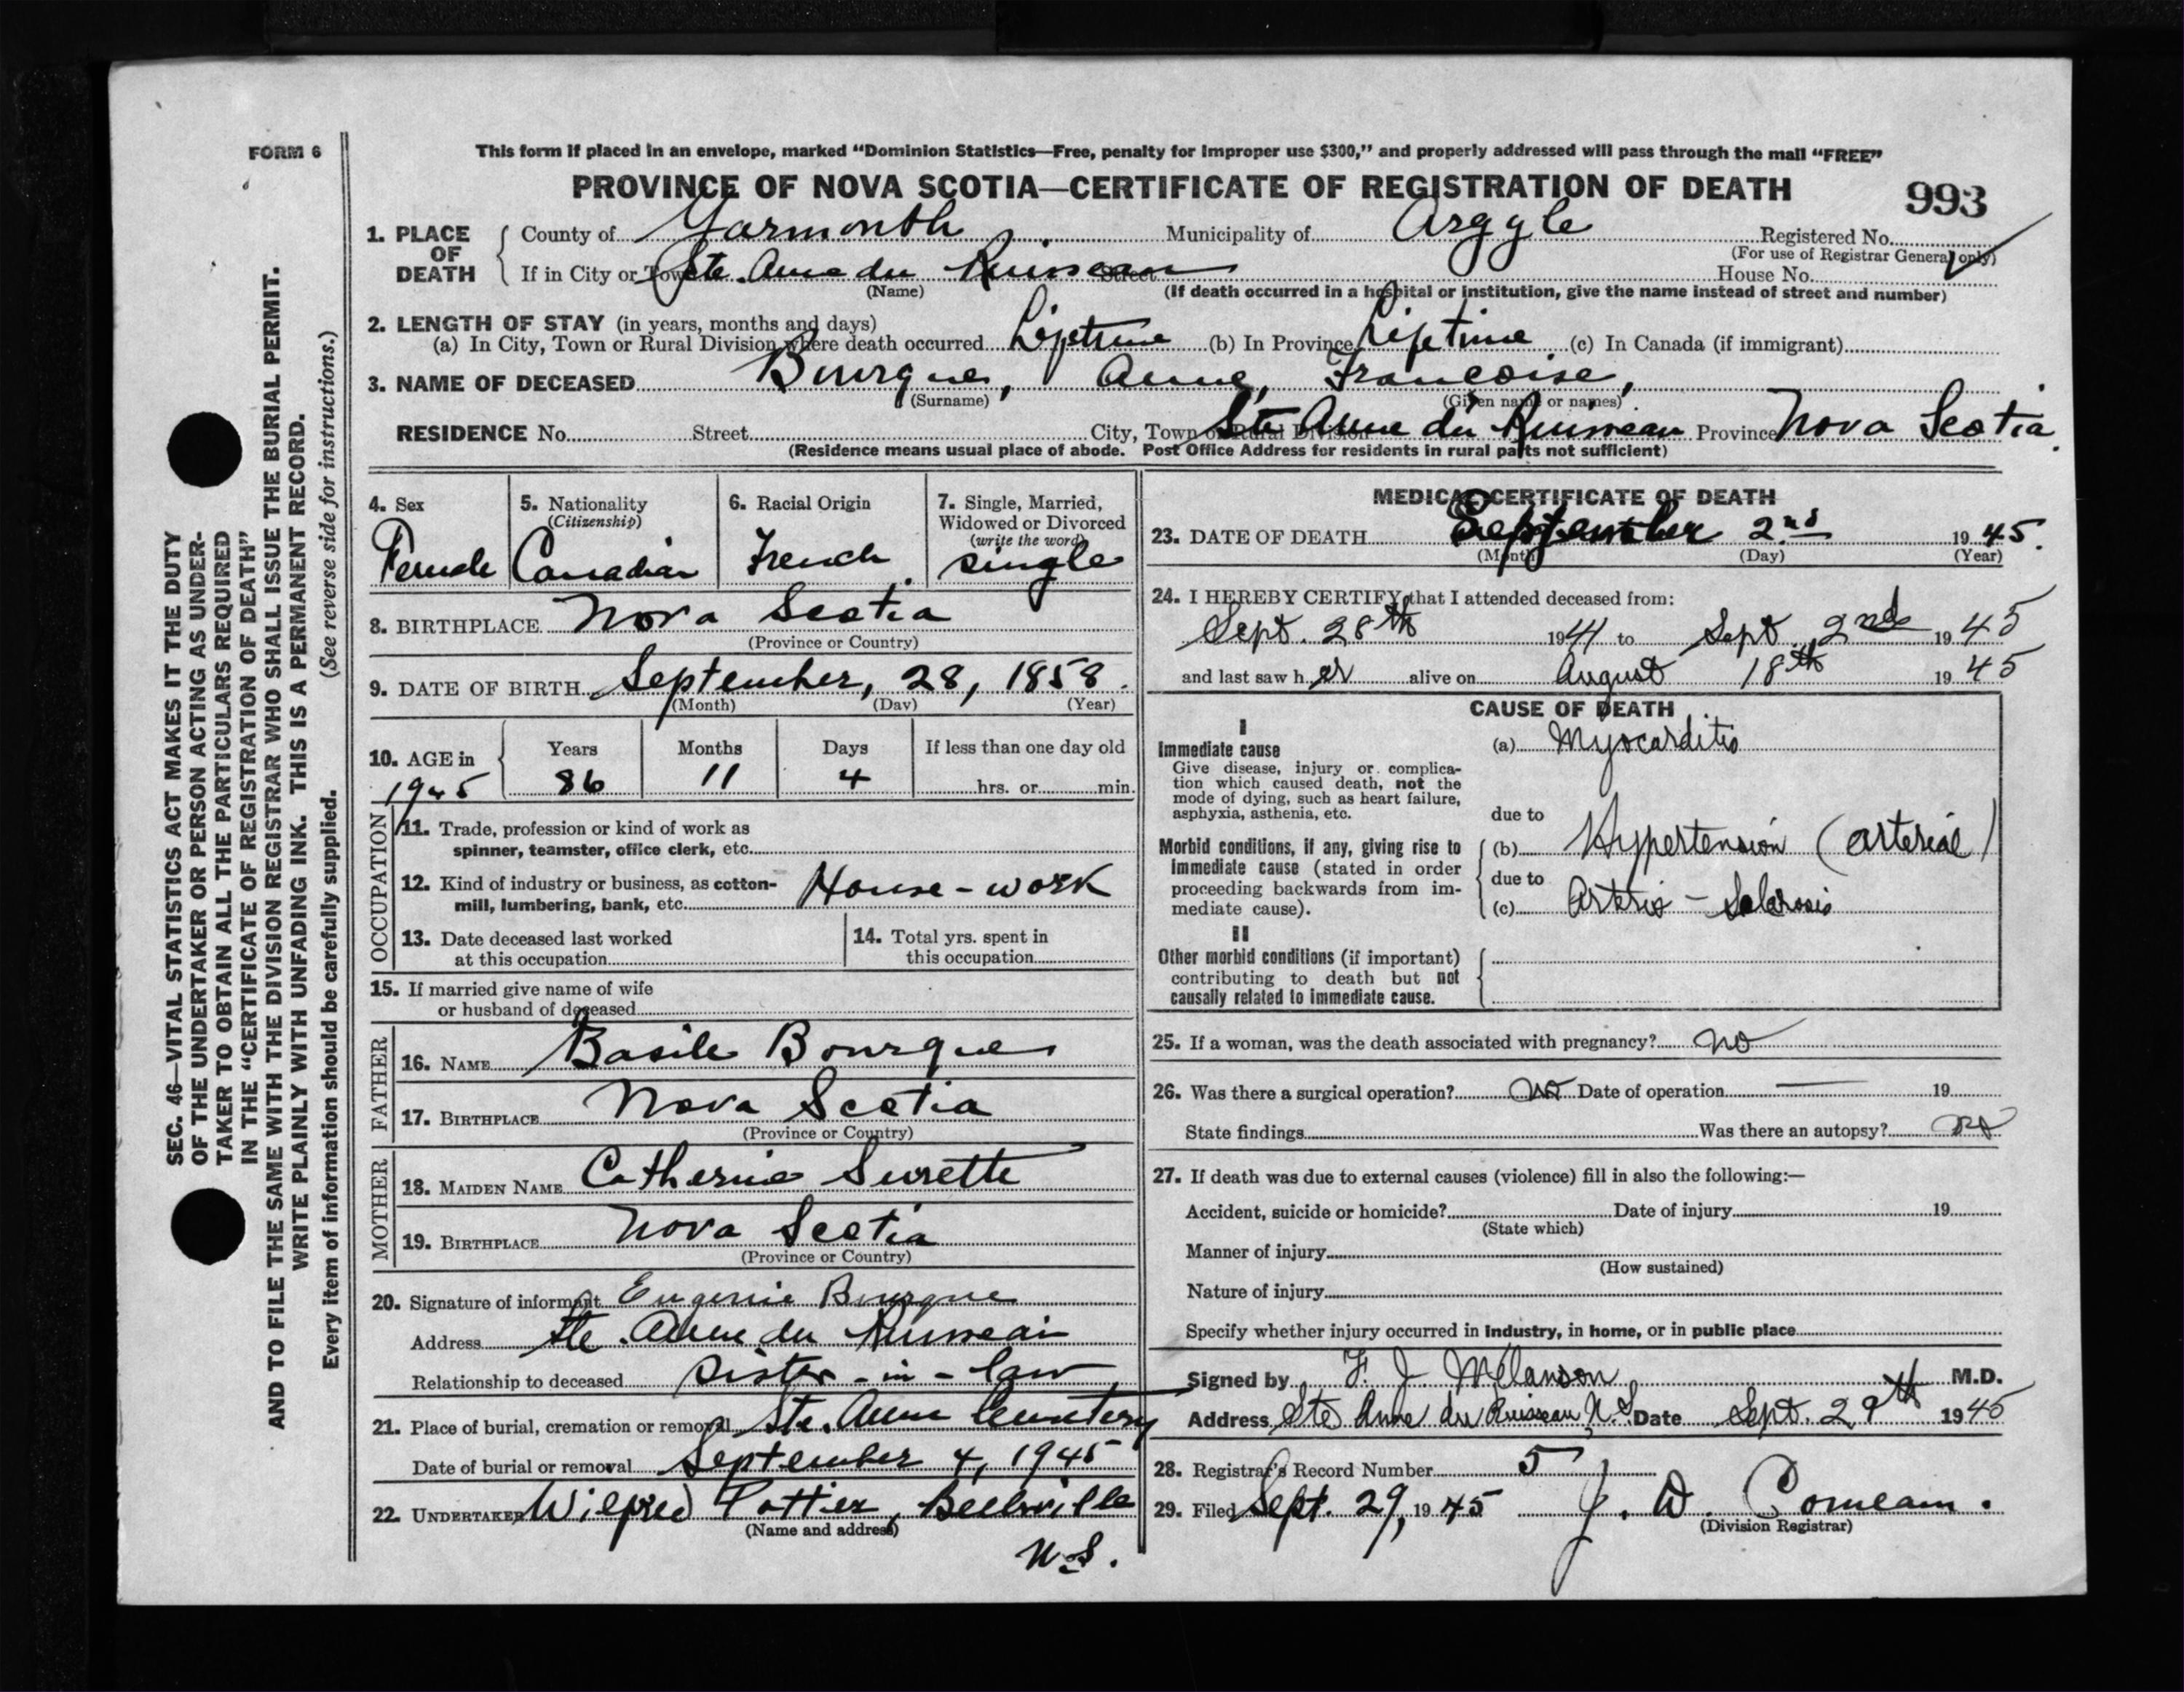 FORM 6
This form if placed in an envelope, marked “Dominion Statistics—Free, penalty for improper use $300,” and properly addressed will pass through the mail “FREE”
PROVINCE OF NOVA SCOTIA—CERTIFICATE OF REGISTRATION OF DEATH
993
1. PLACE OF DEATH
County of Yarmouth Municipality of Argyle Registered No.
(For use of Registrar General only)
If in City or Town Ste. Anne du Ruisseau Street House No.
(Name) (If death occurred in a hospital or institution, give the name instead of street and number)
2. LENGTH OF STAY (in years, months and days)
(a) In City, Town or Rural Division where death occurred Lifetime (b) In Province Lifetime (c) In Canada (if immigrant)
3. NAME OF DECEASED Bourque, Anne, Francoise,
(Surname) (Given name or names)
RESIDENCE No. Street City, Town or Rural Division Ste Anne du Ruisseau Province Nova Scotia.
(Residence means usual place of abode. Post Office Address for residents in rural parts not sufficient)
4. Sex
Female
5. Nationality
(Citizenship)
Canadian
6. Racial Origin
French.
7. Single, Married,
Widowed or Divorced
(write the word)
single
8. BIRTHPLACE Nova Scotia
(Province or Country)
9. DATE OF BIRTH September, 28, 1858.
(Month) (Day) (Year)
10. AGE in 1945
Years Months Days If less than one day old
86 11 4 hrs. or min.
OCCUPATION
11. Trade, profession or kind of work as
spinner, teamster, office clerk, etc.
12. Kind of industry or business, as cotton-
mill, lumbering, bank, etc. House-work
13. Date deceased last worked
at this occupation
14. Total yrs. spent in
this occupation
15. If married give name of wife
or husband of deceased
FATHER
16. NAME Basile Bourque
17. BIRTHPLACE Nova Scotia
(Province or Country)
MOTHER
18. MAIDEN NAME Catherine Surette
19. BIRTHPLACE Nova Scotia
(Province or Country)
20. Signature of informant Eugenie Bourque
Address Ste. Anne du Ruisseau
Relationship to deceased sister-in-law
21. Place of burial, cremation or removal Ste. Anne Cemetery
Date of burial or removal September 4, 1945
22. UNDERTAKER Wilfred Pottier, Belleville
(Name and address)
N.S.
MEDICAL CERTIFICATE OF DEATH
23. DATE OF DEATH September 2nd 1945.
(Month) (Day) (Year)
24. I HEREBY CERTIFY that I attended deceased from:
Sept. 28th 1941 to Sept. 2nd 1945
and last saw h er alive on August 18th 1945
CAUSE OF DEATH
I
Immediate cause
Give disease, injury or complica-
tion which caused death, not the
mode of dying, such as heart failure,
asphyxia, asthenia, etc.
(a) Myocarditis
due to
Morbid conditions, if any, giving rise to
immediate cause (stated in order
proceeding backwards from im-
mediate cause).
(b) Hypertension (arterial)
due to
(c) Arterio-Sclerosis
II
Other morbid conditions (if important)
contributing to death but not
causally related to immediate cause.
25. If a woman, was the death associated with pregnancy? no
26. Was there a surgical operation? no Date of operation — 19
State findings Was there an autopsy? no
27. If death was due to external causes (violence) fill in also the following:—
Accident, suicide or homicide? Date of injury 19
(State which)
Manner of injury
(How sustained)
Nature of injury
Specify whether injury occurred in industry, in home, or in public place
Signed by F. J. Melanson M.D.
Address Ste Anne du Ruisseau, N.S. Date Sept. 29th 1945
28. Registrar's Record Number 5
29. Filed Sept. 29, 1945 J. W. Comeau.
(Division Registrar)
SEC. 46—VITAL STATISTICS ACT MAKES IT THE DUTY
OF THE UNDERTAKER OR PERSON ACTING AS UNDER-
TAKER TO OBTAIN ALL THE PARTICULARS REQUIRED
IN THE “CERTIFICATE OF REGISTRATION OF DEATH”
AND TO FILE THE SAME WITH THE DIVISION REGISTRAR WHO SHALL ISSUE THE BURIAL PERMIT.
WRITE PLAINLY WITH UNFADING INK. THIS IS A PERMANENT RECORD.
Every item of information should be carefully supplied. (See reverse side for instructions.)